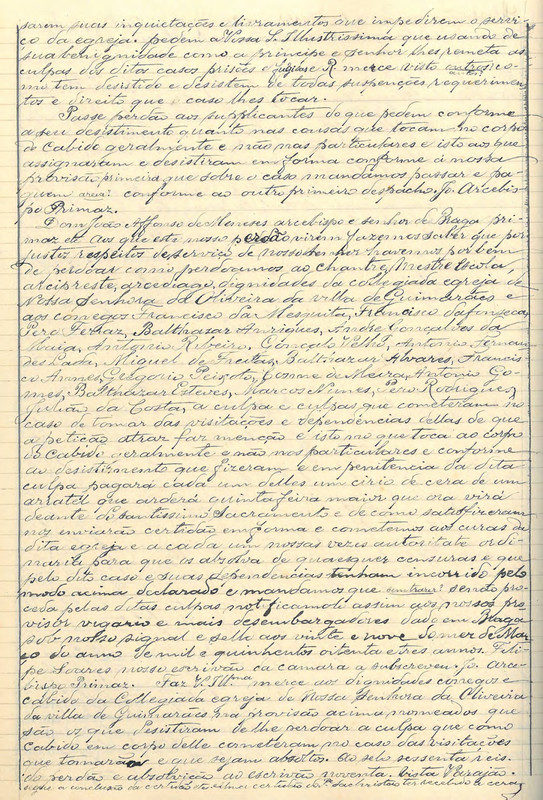 sarem suas inquietações e livramentos que impedirem o servi-
ço da egreja. pedem a Vossa S. Illustrissima que usando de
sua benignidade como a principe e senhor lhes remeta as
culpas dos ditos casos prisões e R. merce visto
mo tem desistido e desistem de todas suspenções requerimen-
tos e direito que caso lhes tocar.
Passe perdão aos supplicantes do que pedem conforme
a seu desistimento quanto nas cousas que tocam no corpo
de Cabido geralmente e não nas particulares e isto aos que
assignaram e desistiram em forma conforme á nossa
provisão primeira que sobre o caso mandamos passar e pa-
guem conforme ao outro primeiro despacho. Jo. Arcebis-
po Primaz.
Dom João Affonso de Meneses arcebispo e senhor de Braga pri-
maz etc. Aos que este nosso perdão virem fazemos saber que por
justos respeitos de serviço de nosso senhor havemos por bem
de perdoar como perdoamos ao Chantre, Mestre Escola,
arcipreste, arcediago, dignidades da collegiada egreja de
Nossa Senhora da Oliveira da villa de Guimarães e
aos conegos Francisco da Mesquita, Francisco da Fonseca,
Pero Ferraz, Balthazar Anriques, Andre Gonçalves da
Maia, Antonio Ribeiro, Gonçalo Velho, Antonio Fernan-
des Lada, Miguel de Freitas, Balthazar Alvares, Francis-
co Annes, Gregorio Peixoto, Cosme de Meira, Antonio Go-
mes, Balthazar Esteves, Marcos Nunes, Pero Rodrigues,
Julião da Costa, a culpa e culpas que cometeram no
caso de tomar das visitações e dependencias dellas de que
a petição atraz faz menção e isto no que toca ao corpo
do Cabido geralmente e não nas particulares e conforme
ao desistimento que fizeram e em penitencia da dita
culpa pagará cada um delles um cirio de cera de um
arratel que arderá quinta feira maior que ora virá
deante do Santissimo Sacramento e de como satisfizeram
nos enviarão certidão em forma e cometemos aos curas da
dita egreja e a cada um nossas vezes autoritate ordi-
naria para que os absolva de quaesquer censuras e que
pelo dito caso e suas dependencias tenham incorrido pelo
modo acima declarado e mandamos que senão pro-
ceda pelas ditas culpas notificamol-o assim aos nossos pro-
visor vigario e mais desembargadores dado em Braga
sob nosso signal e sello aos vinte e nove do mez de Mar-
ço do anno de mil e quinhentos oitenta e tres annos. Feli-
pe Soares nosso escrivão da camara a subscreveu. Jo. Arce-
bispo Primaz. Faz V. Illma merce aos dignidades conegos e
cabido da Collegiada egreja de Nossa Senhora da Oliveira
da villa de Guimarães na provisão acima nomeados que
são os que desistiram de lhe perdoar a culpa que como
Cabido em corpo delle cometeram no caso das visitações
que tomarão e que sejam absoltos. Ao selo sessenta reis.
do perdão e absolvição ao escrivão noventa. Vista Varajão.
segue a conclusão da certidão do sachristão ter recebido a cera